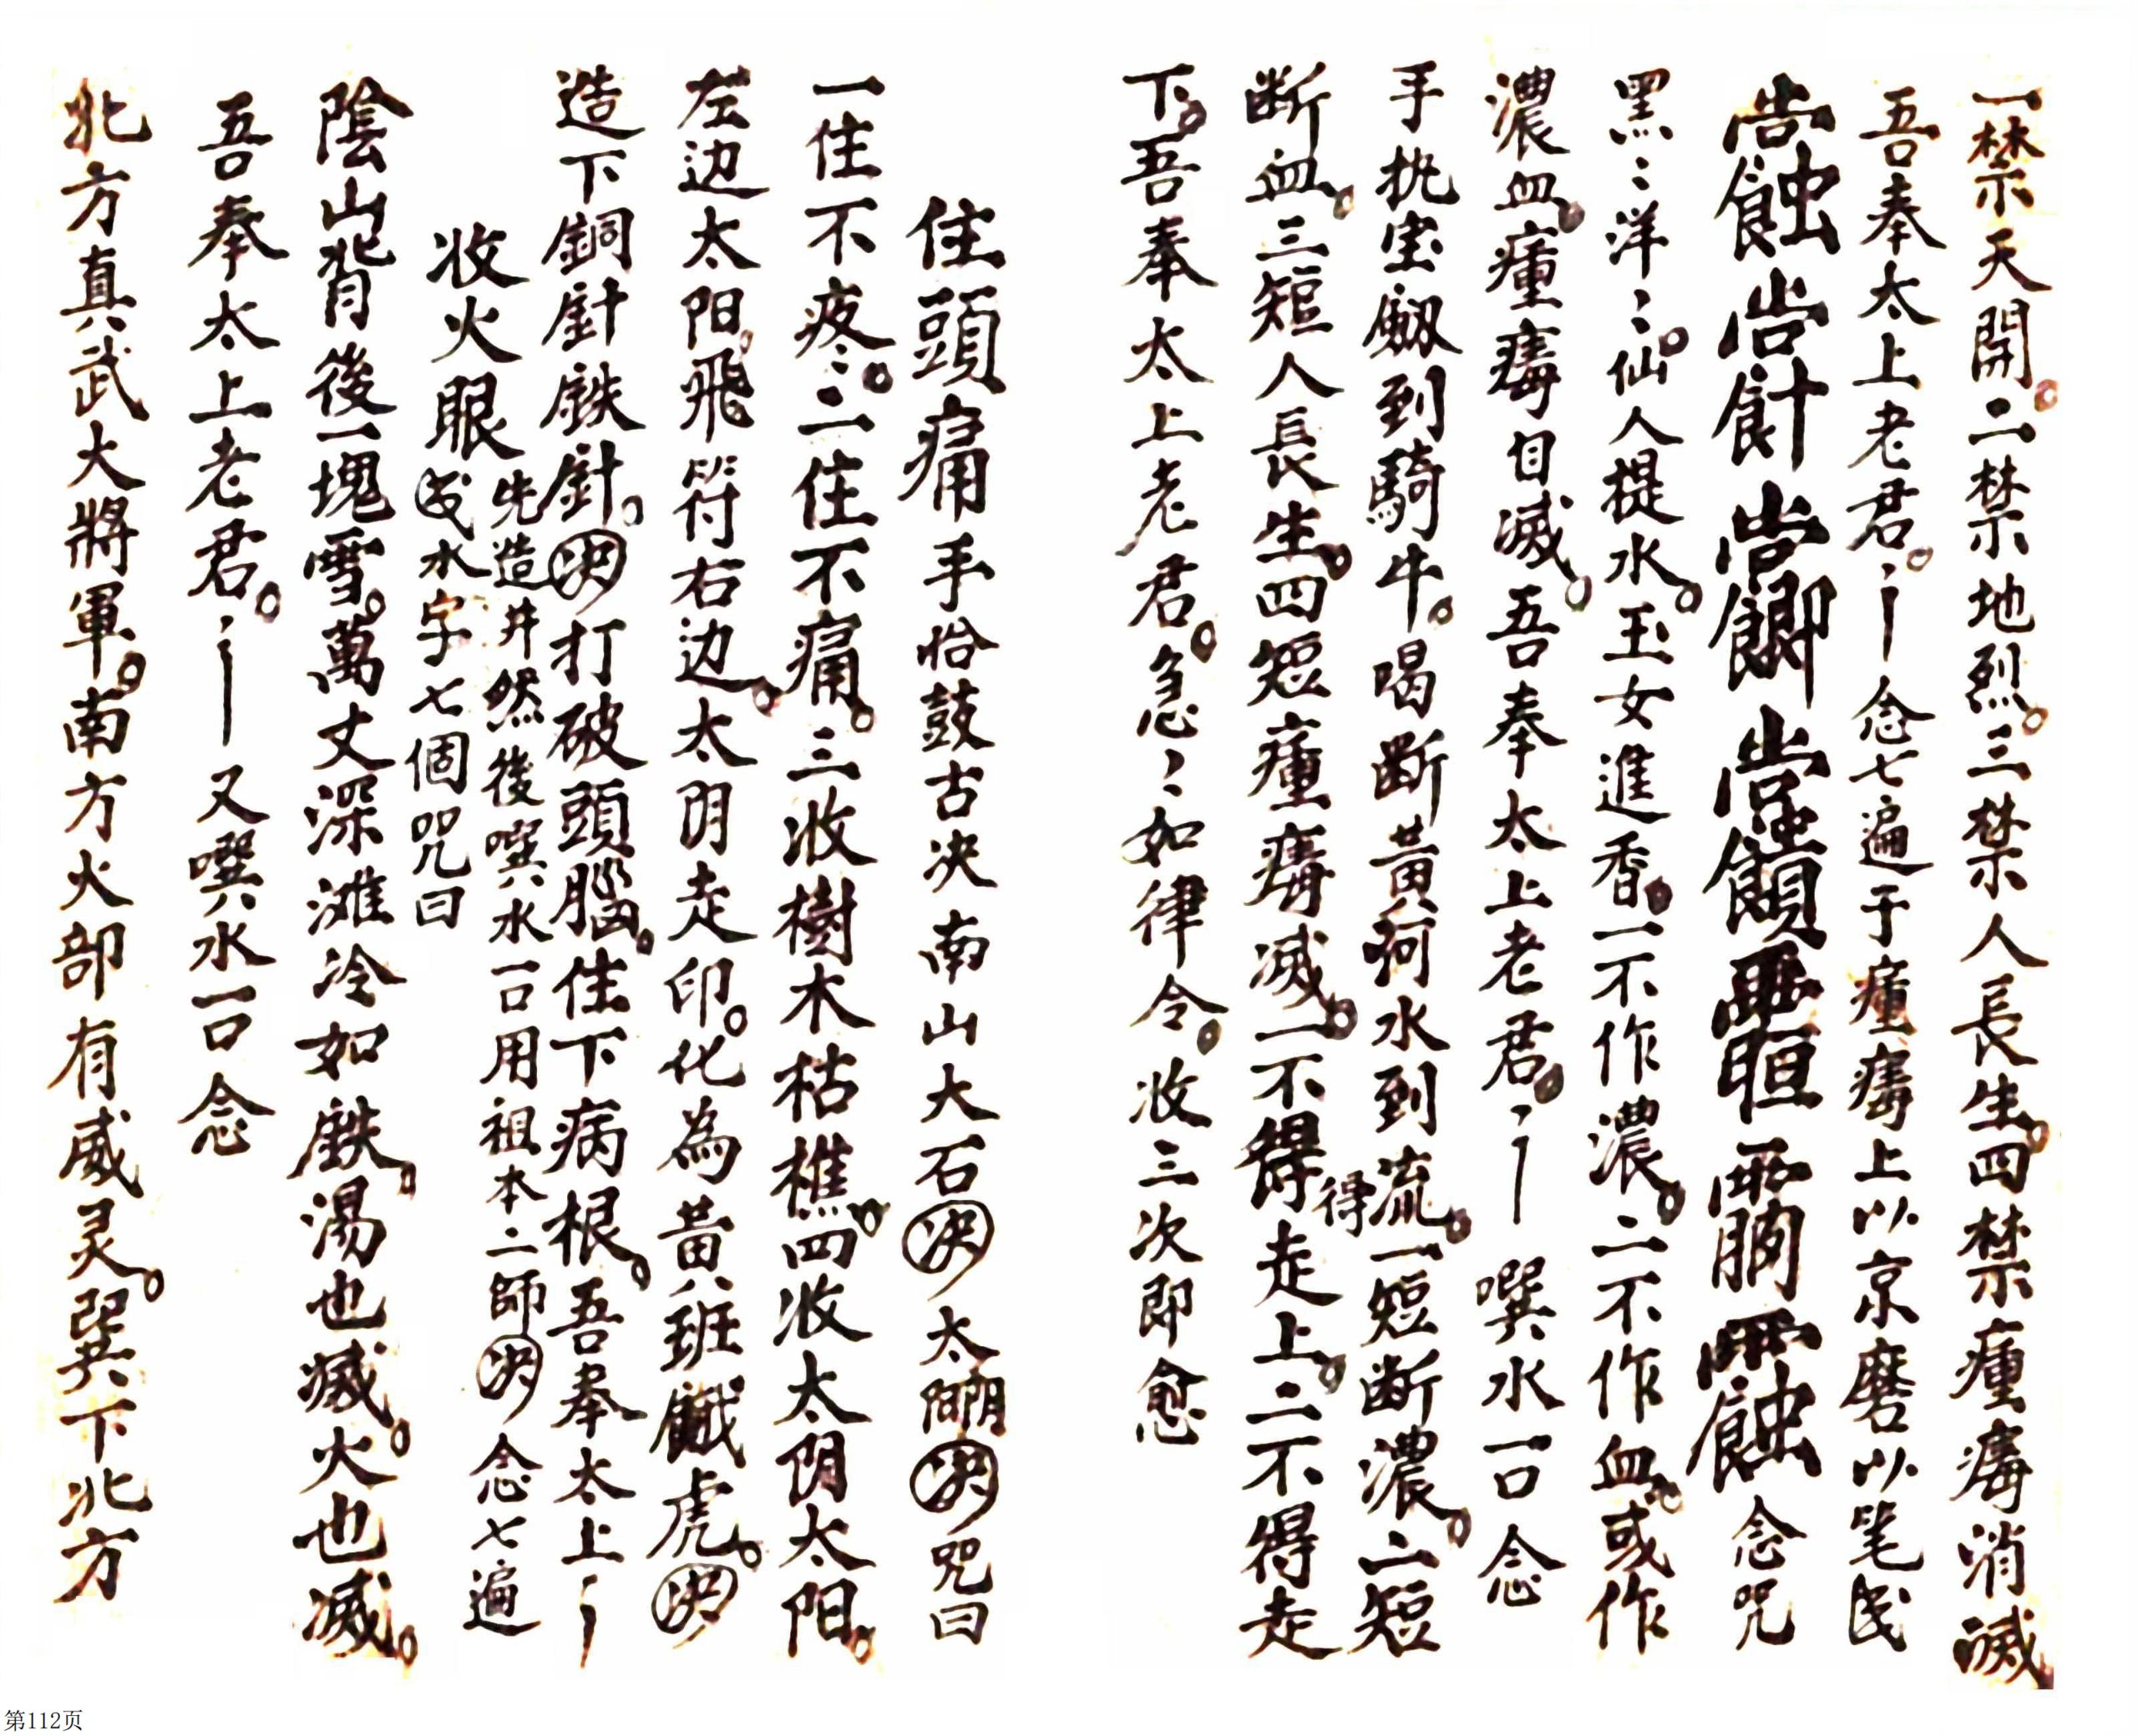 一禁天開。二禁地烈。三禁人長生。四禁瘇毒消滅
吾奉太上老君。念七遍于瘇上以京磨以笔
念咒
黑:洋:。仙人提水。玉女進香。一不作濃。二不作血。或作
濃血。瘇自滅。吾奉太上老君。噀水一口念
手执宝劔到騎牛。喝断黃河水到流。一短断濃。二短
断血。三短人長生。四短瘇滅。一不得走上。二不得走
得
下。吾奉太上老君。急:如律令。收三次即愈
住頭痛手恰鼓古决南山大石决太决咒曰
一住不疼:。二住不痛。三收樹木枯樵。四收太阴太阳。
左边太阳。飛符右边。太阴走印。化為黃班虎。决
造下銅針鉄針。决打破頭腦。住下病根。吾奉太上
先造井然後噀水一口用祖本二師决念七遍
收火眼水字七個咒曰
陰山背後一塊雪。萬丈深滩冷如鉄。湯也滅。火也滅。
吾奉太上老君。又噀水一口念
北方真武大將軍。南方火部有威灵。巽下北方
第112页